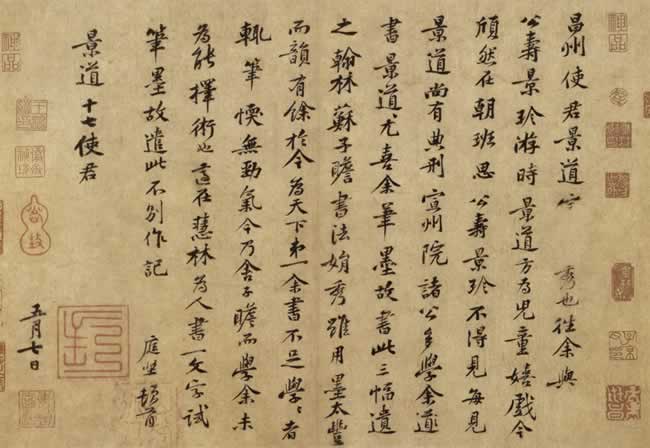 昌州使君景道宗 秀也往余與
公壽景珍游時景道方為兒童嬉戲今
頎然在朝班思公壽景珍不得見每見
景道尚有典刑宣州院諸公多學余道
書景道尤喜余筆墨故書此三幅遺
之翰林蘇子瞻書法娟秀雖用墨太豐
而韻有餘於今為天下第一余書不足學〻者
輒筆愞無勁氣今乃舍子瞻而學余未
為能擇術也適在慧林為人書一文字試
筆墨故遣此不別作記
庭堅頓首
景道十七使君
五月七日